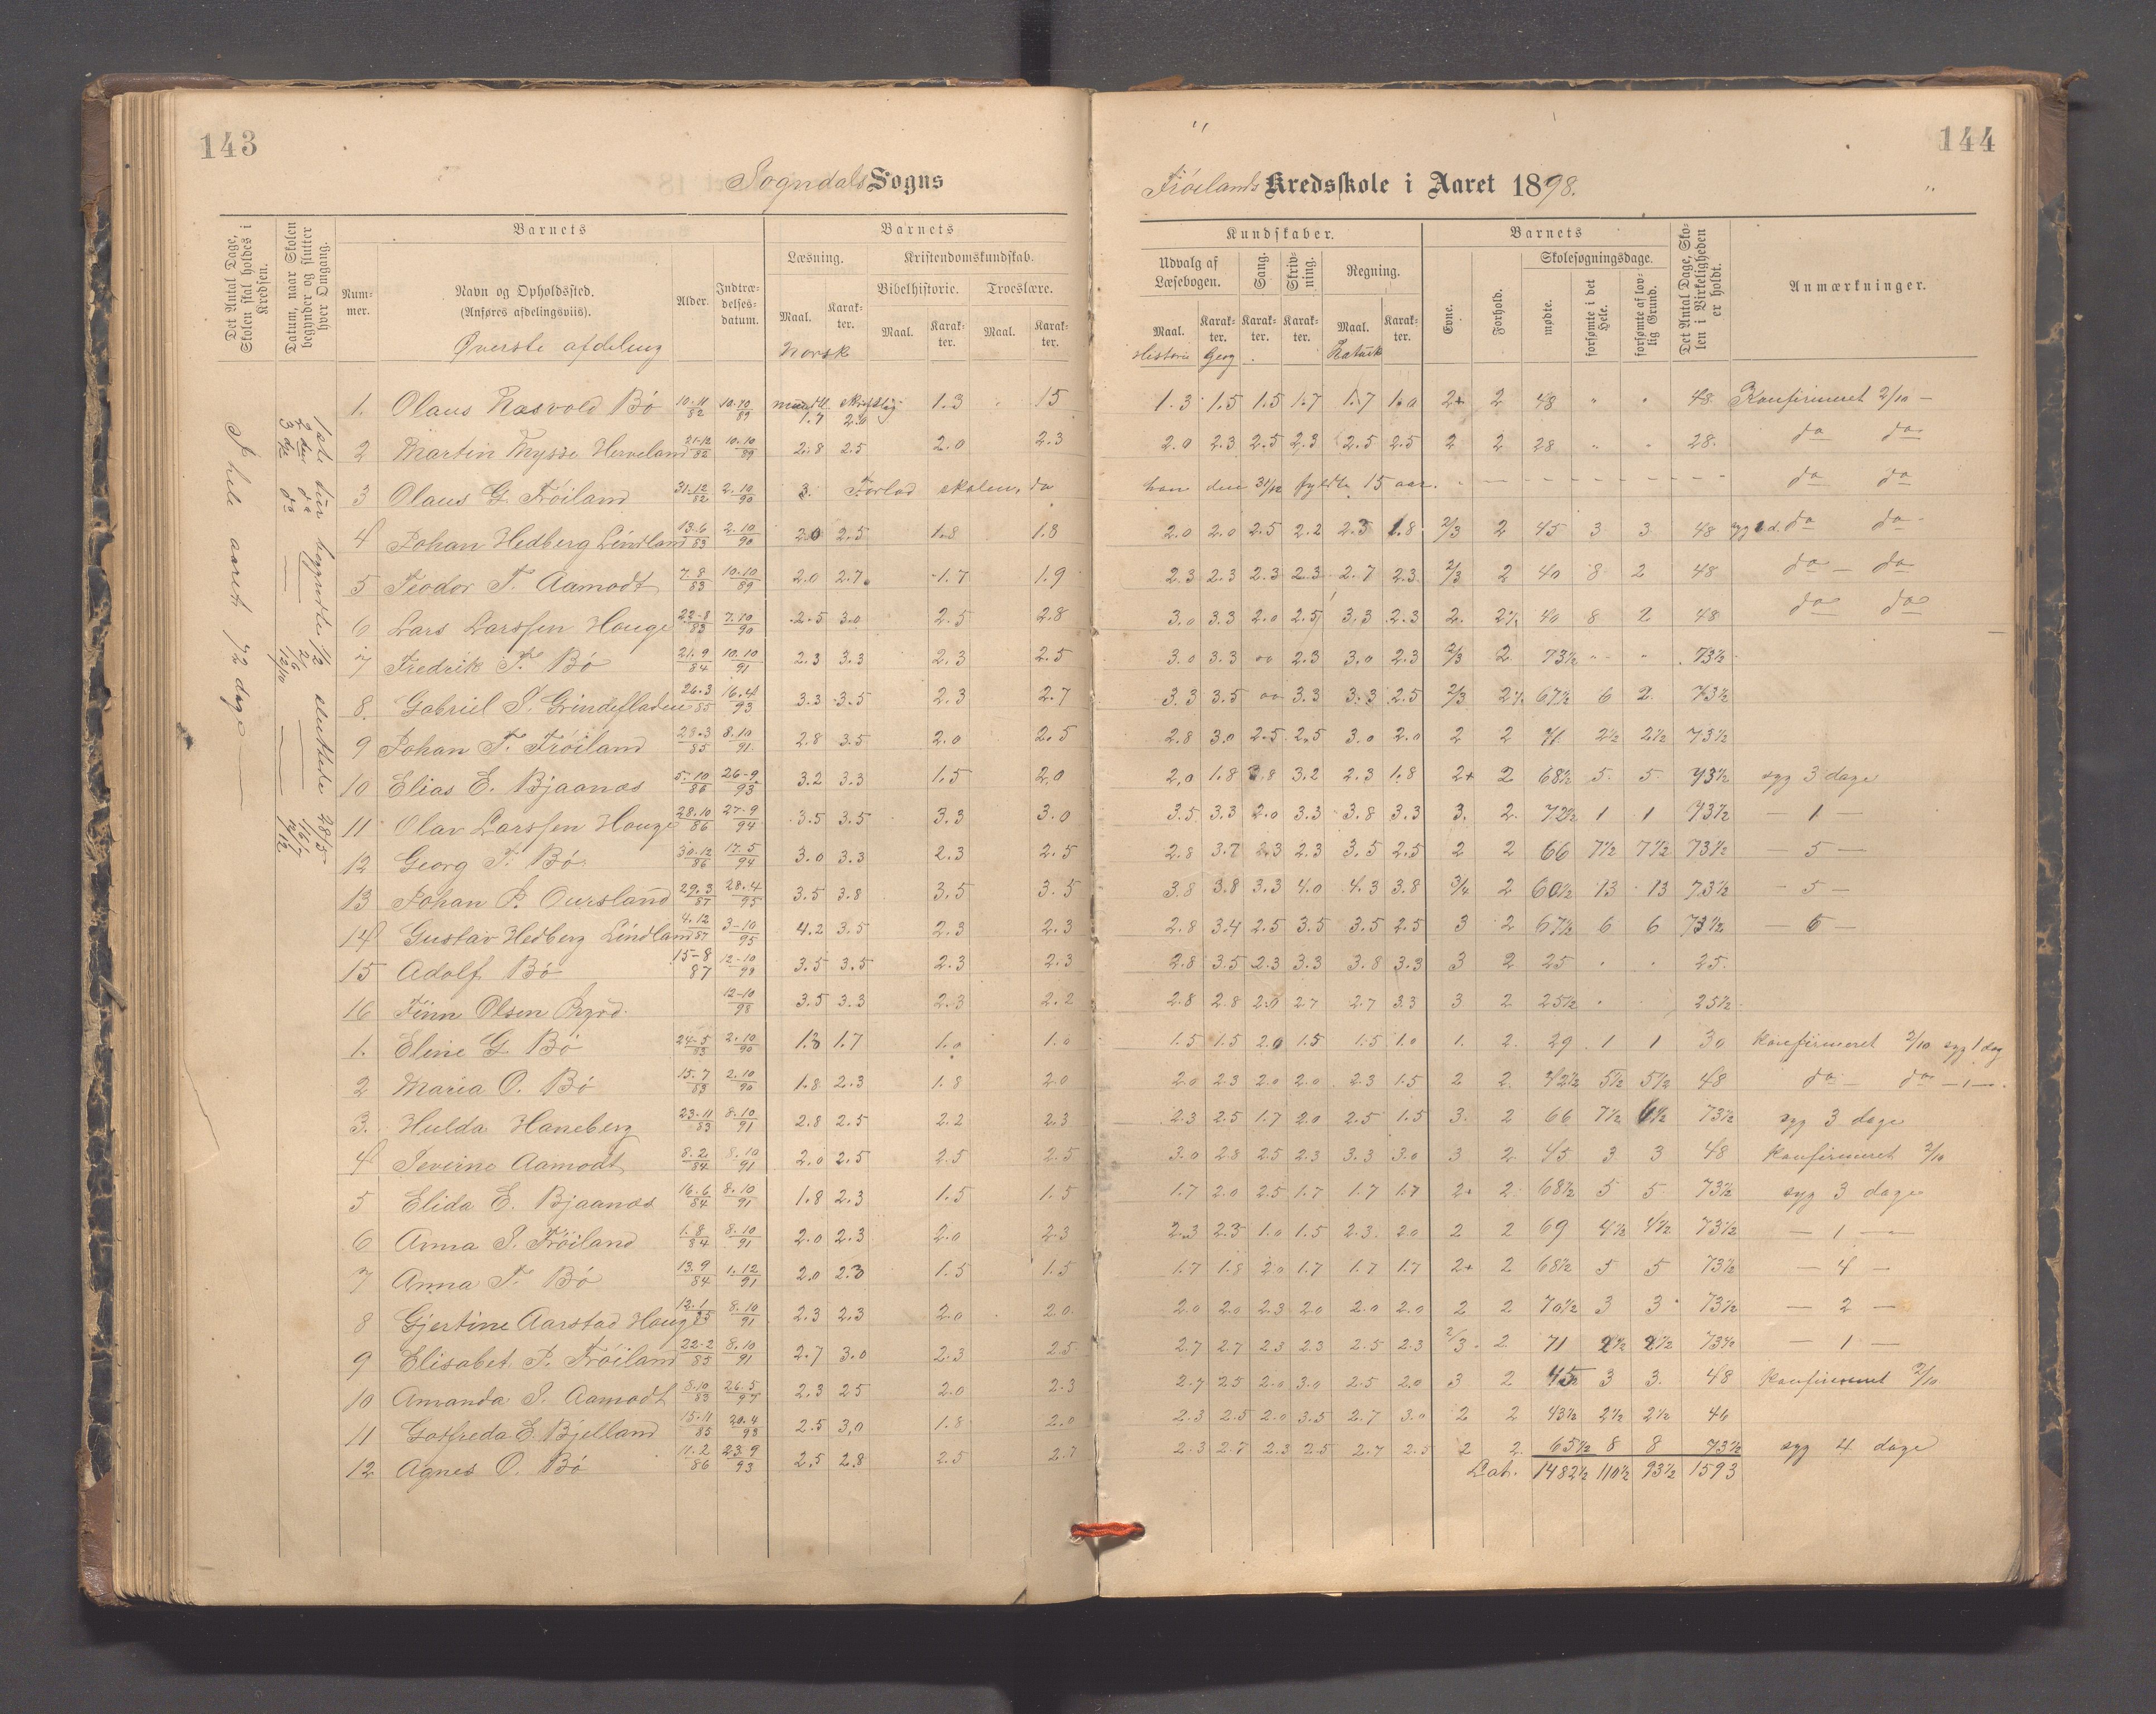 143
144
Sogndals Sogns
Frøilands Kredsskole i Aaret 1898.
Det Antal Dage, Skolen skal holdes i Kredsen.
Datum, naar Skolen begynder og slutter hver Omgang.
Barnets
Nummer.
Navn og Opholdssted. (Anføres afdelingsviis).
Alder.
Indtrædelsesdatum.
Barnets
Læsning.
Maal.
Karakter.
Kristendomskundskab.
Bibelhistorie.
Maal.
Karakter.
Troeslære.
Maal.
Karakter.
Kundskaber.
Udvalg af Læsebogen.
Maal.
Karakter.
Sang.
Karakter.
Skrivning.
Karakter.
Regning.
Maal.
Karakter.
Barnets
Evne.
Forhold.
Skolesøgningsdage.
mødte.
forsømte i det Hele.
forsømte af lovlig Grund.
Det Antal Dage, Skolen i Virkeligheden er holdt.
Anmærkninger.
Øverste afdeling
Norsk
Historie Geog
I hele aaret 72 dage
1ste tur begyndte 1/2 sluttede 28/5
2den do — 2/6 — 1/7
3die do — 12/10 — 7/12
1. Olaus Rasvold Bø 10.11/82 10.10/89 mundtl. 1.7 skriftlig 2.0 1.3 15 1.3 1.5 1.5 1.7 1.7 1.0 2+ 2 48 " " 48 Konfirmeret 2/10 —
2 Martin Mysse Herveland 21-12/82 10.10/89 2.8 2.5 2.0 2.3 2.0 2.3 2.5 2.3 2.5 2.5 2 2 28 " " 28. do do
3 Olaus G. Frøiland 31.12/82 2.10/90 3. Forlod skolen, da han den 31/12 fyldte 15 aar. do do
4 Johan Hedberg Lindland 13.6/83 2.10/90 2.0 2.5 1.8 1.8 2.0 2.0 2.5 2.2 2.3 1.8 2/3 2 45 3 3 48 syg 2 d. do do
5 Teodor T. Aamodt 7.8/83 10.10/89 2.0 2.7 1.7 1.9 2.3 2.3 2.3 2.3 2.7 2.3 2/3 2 40 8 2 48 do — do
6 Lars Larssen Hauge 22-8/83 7.10/90 2.5 3.0 2.5 2.8 3.0 3.3 2.0 2.5 3.3 2.3 2. 2 1/2 40 8 2 48 do do
7 Fredrik T. Bø 21.9/84 10.10/91 2.3 3.3 2.3 2.5 3.0 3.3 oo 2.3 3.0 2.3 2/3 2 73½ " " 73½
8. Gabriel S. Grindefladen 26.3/85 16.4/93 3.3 3.5 2.3 2.7 3.3 3.5 oo 3.3 3.3 2.5 2/3 2 1/2 67½ 6 2 73½
9 Johan T. Frøiland 23.3/85 8.10/91 2.8 3.5 2.0 2.5 2.8 3.0 2.5 2.5 3.0 2.0 2 2 71 2½ 2½ 73½
10 Elias E. Bjaanæs 5.10/86 26-9/93 3.2 3.3 1.5 2.0 2.0 1.8 3.8 3.2 2.3 1.8 2+ 2 68½ 5 5 73½ syg 3 dage
11 Olav Larssen Hauge 28.10/86 27-9/94 3.5 3.5 3.3 3.0 3.5 3.3 2.0 3.3 3.8 3.3 3. 2. 72½ 1 1 73½ — 1 —
12 Georg T. Bø 30.12/86 17.5/94 3.0 3.3 2.3 2.5 2.8 3.7 2.3 2.3 3.5 2.5 2 2 66 7½ 7½ 73½ — 5 —
13 Johan P. Oursland 29.3/87 28.4/95 3.5 3.8 3.5 3.5 3.8 3.8 3.3 4.0 4.3 3.8 3/4 2 60½ 13 13 73½ — 5 —
14 Gustav Hedberg Lindland 4.12/87 3-10/95 4.2 3.5 2.3 2.3 2.8 3.4 2.5 3.5 3.5 2.5 3 2 67½ 6 6 73½ — 6 —
15 Adolf Bø 15-8/87 12-10/98 3.5 3.5 2.3 2.3 2.8 3.5 2.3 3.3 3.8 3.3 3 2 25 " " 25.
16 Finn Olsen 12-10/98 3.5 3.3 2.3 2.2 2.8 2.8 2.0 2.7 2.7 3.3 3 2 25½ " 25½
1. Eline G. Bø 24-5/83 2.10/90 1.3 1.7 1.0 1.0 1.5 1.5 2.0 1.5 1.5 1.0 1. 2. 29 1 1 30 Konfirmeret 2/10 syg 1 dag
2 Maria O. Bø 15.7/83 2.10/90 1.8 2.3 1.8 2.0 2.0 2.3 2.0 2.0 2.3 1.5 2 2. 42½ 5½ 5½ 48 do — do — 1 —
3. Hulda Haneberg 23-11/83 8.10/91 2.8 2.5 2.2 2.3 2.3 2.5 1.7 2.0 2.5 1.5 3. 2 66 7½ 6½ 73½ syg 3 dage
4 Severine Aamodt 8.2/84 8.10/91 2.0 2.5 2.5 2.5 3.0 2.8 2.5 2.3 3.3 3.0 3 2 45 3 3 48 Konfirmeret 2/10
5 Elida E. Bjaanæs 16.6/84 8.10/91 1.8 2.3 1.5 1.5 1.7 2.0 2.5 1.7 1.7 1.7 2+ 2 68½ 5 5 73½ syg 3 dage
6 Anna S. Frøiland 1.8/84 8.10/91 2.0 2.3 2.0 2.3 2.3 2.3 1.0 1.5 2.3 2.0 2 2 69 4½ 4½ 73½ — 1 —
7 Anna T. Bø 13.9/84 1.12/91 2.0 2.3 1.5 1.5 1.7 1.8 2.0 1.7 1.7 1.7 2+ 2 68½ 5 5 73½ — 4 —
8 Gjertine Aarstad Hauge 12.1/85 8.10/91 2.3 2.3 2.0 2.0 2.0 2.0 2.3 2.0 2.0 2.0 2 2 70½ 3 3 73½ — 2 —
9 Elisabet P. Frøiland 22-2/85 8.10/91 2.7 3.0 2.3 2.5 2.7 2.7 2.3 2.3 2.5 2.3 2/3 2 71 2½ 2½ 73½ — 1 —
10 Amanda S. Aamodt 8.10/83 26.5/93 2.3 2.5 2.0 2.3 2.7 2.5 2.0 3.0 2.5 2.0 3 2 45 3 3. 48 Konfirmeret 2/10
11 Gotfreda E. Bjelland 15.11/85 20.4/93 2.5 3.0 1.8 2.0 2.3 2.5 2.0 3.5 2.7 3.0 2 2 43½ 2½ 2½ 46
12 Agnes O. Bø 11.2/86 23.9/93 2.5 2.8 2.5 2.7 2.3 2.7 2.3 2.5 2.7 2.5 2 2. 65½ 8 8 73½ syg 4 dage
Lat. 1482½ 110½ 93½ 1593